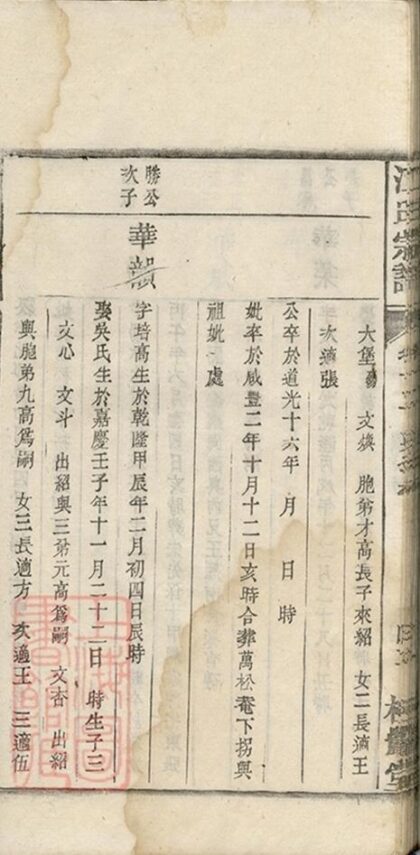 氏宗譜
大堡 文煥 胞弟才高長子來紹 女二長適王
次適張
公卒於道光十六年 月 日 時
妣卒於咸豐二年十月十二日亥時合葬萬松菴下拐與
祖妣一處
勝公
次子
華韻
字培高生於乾隆甲辰年二月初四日辰時
娶吳氏生於嘉慶壬子年十一月二十二日 時生子三
文心 文斗 出紹與三弟元高爲嗣 文杏 出紹
與胞弟九高爲嗣 女三長適方 次適王 三適伍